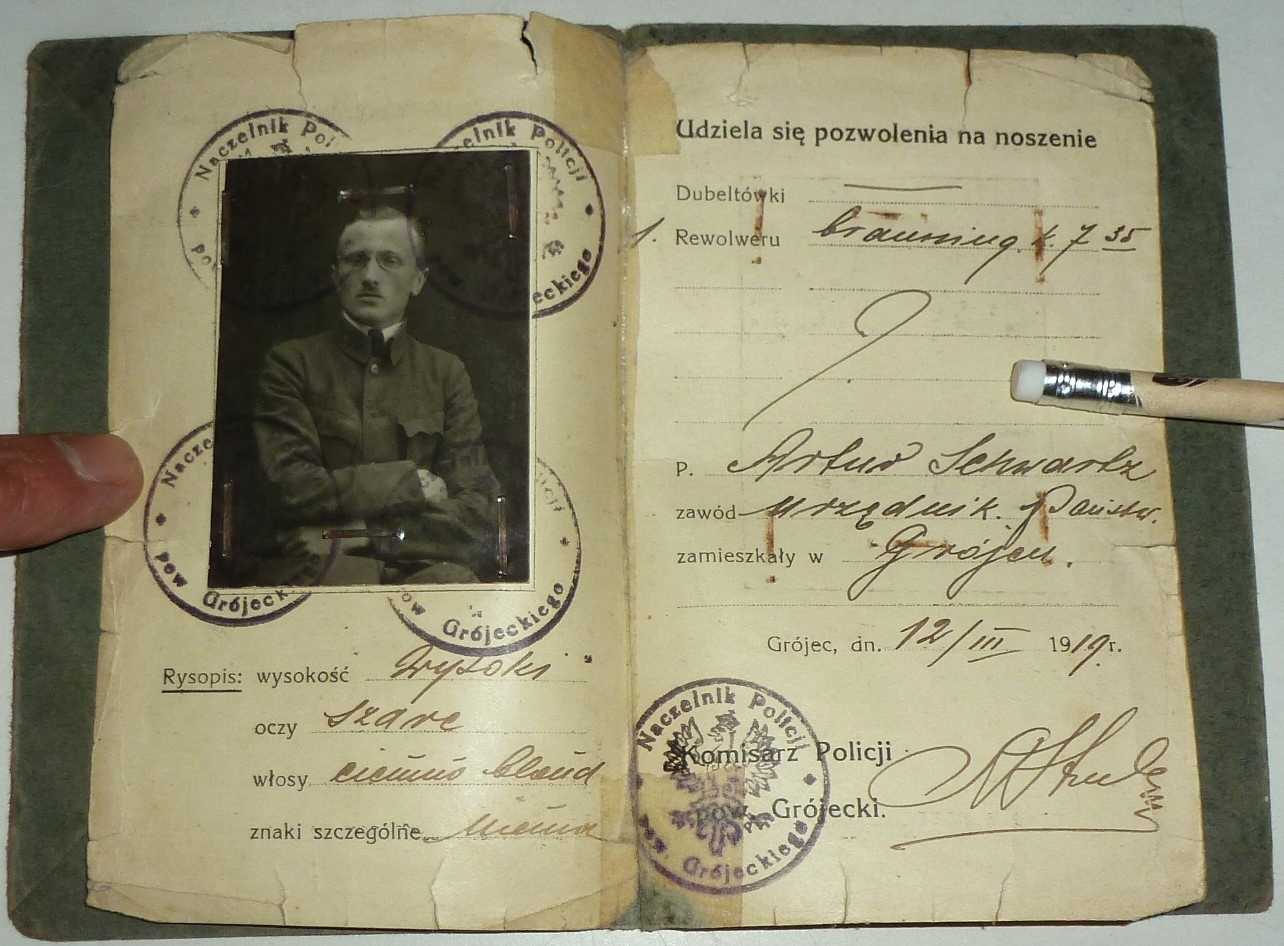 Naczelnik Poli
elnik Policji
Grójeckiego
Nacze
Policji
pow. Grójeck
pow Grójeckiego
Rysopis: wysokość Wysoki
oczy szare
włosy ciemno blond
znaki szczególne niema
Udziela się pozwolenia na noszenie
Dubeltówki —
1. Rewolweru browning k. 7 35
P. Artur Schwartz
zawód urzędnik. Państw.
zamieszkały w Grójcu.
Grójec, dn. 12/III 1919 r.
Naczelnik Policji
pow. Grójeckiego
Komisarz Policji
pow. Grójecki.